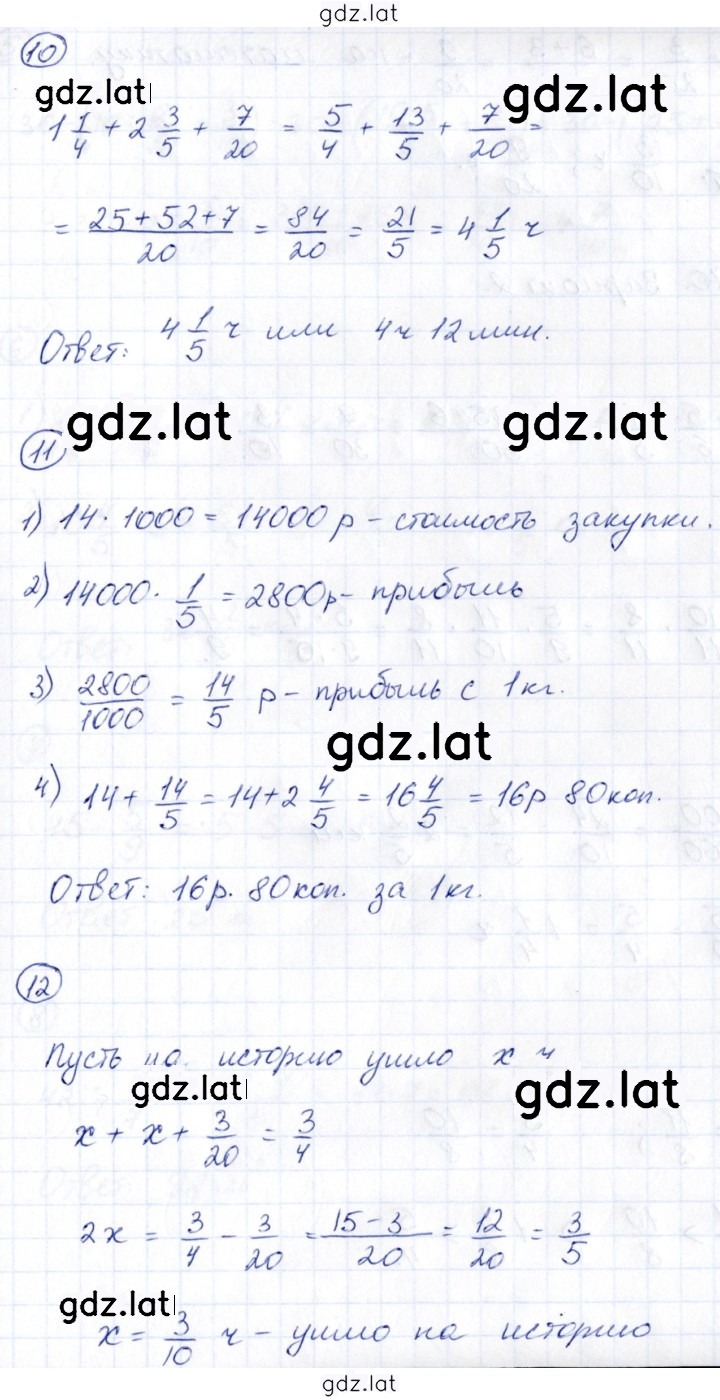 gdz.lat
10
gdz.lat
gdz.lat
1 1/4 + 2 3/5 + 7/20 = 5/4 + 13/5 + 7/20 =
= 25+52+7/20 = 84/20 = 21/5 = 4 1/5 ч
Ответ: 4 1/5 ч или 4ч 12мин.
gdz.lat
gdz.lat
11
1) 14 · 1000 = 14000 р - стоимость закупки.
2) 14000 · 1/5 = 2800р - прибыль
3) 2800/1000 = 14/5 р - прибыль с 1кг.
gdz.lat
4) 14 + 14/5 = 14 + 2 4/5 = 16 4/5 = 16р 80коп.
Ответ: 16р. 80коп. за 1кг.
12
Пусть на историю ушло x ч
gdz.lat
gdz.lat
x + x + 3/20 = 3/4
2x = 3/4 - 3/20 = 15-3/20 = 12/20 = 3/5
gdz.lat
x = 3/10 ч - ушло на историю
gdz.lat